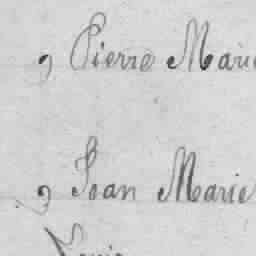 9 Pierre Marie
9 Jean Marie
Louis